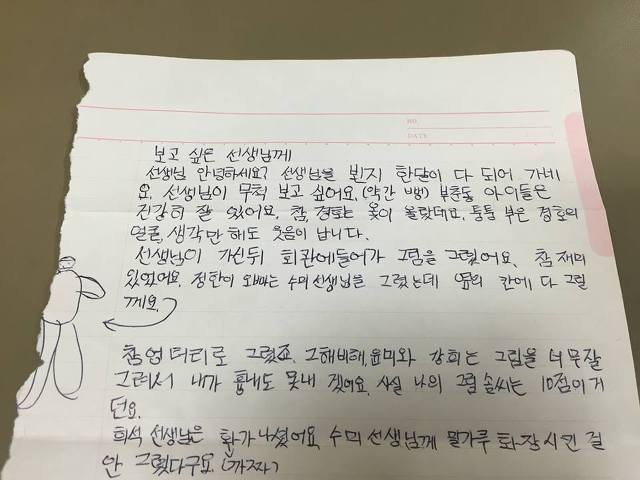 NO.
DATE
보고 싶은 선생님께
선생님 안녕하세요? 선생님을 뵌지 한달이 다 되어 가네
요. 선생님이 무척 보고 싶어요. (약간 뻥) 부춘동 아이들은
건강히 잘 있어요. 참, 경호는 옻이 올랐대요. 퉁퉁 부은 경호의
얼굴, 생각만 해도 웃음이 납니다.
선생님이 가신뒤 회관에들어가 그림을 그렸어요. 참 재미
있었어요. 정환이 오빠는 수미선생님을 그렸는데 옆의 칸에 다 그릴
께요.
참 엉터리로 그렸죠. 그해비해, 윤미와 강희는 그림을 너무잘
그려서 내가 흉내도 못내 겠어요. 사실 나의 그림 솜씨는 10점이거
던요.
희석 선생님은 화가 나셨어요. 수미 선생님께 밀가루 화장시킨 걸
안 그렸다구요. (가짜)